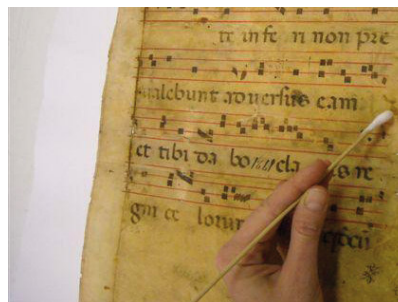 te infe ri non pre
ualebunt aduersus eam
et tibi da bo cla es re
gni ce lorum